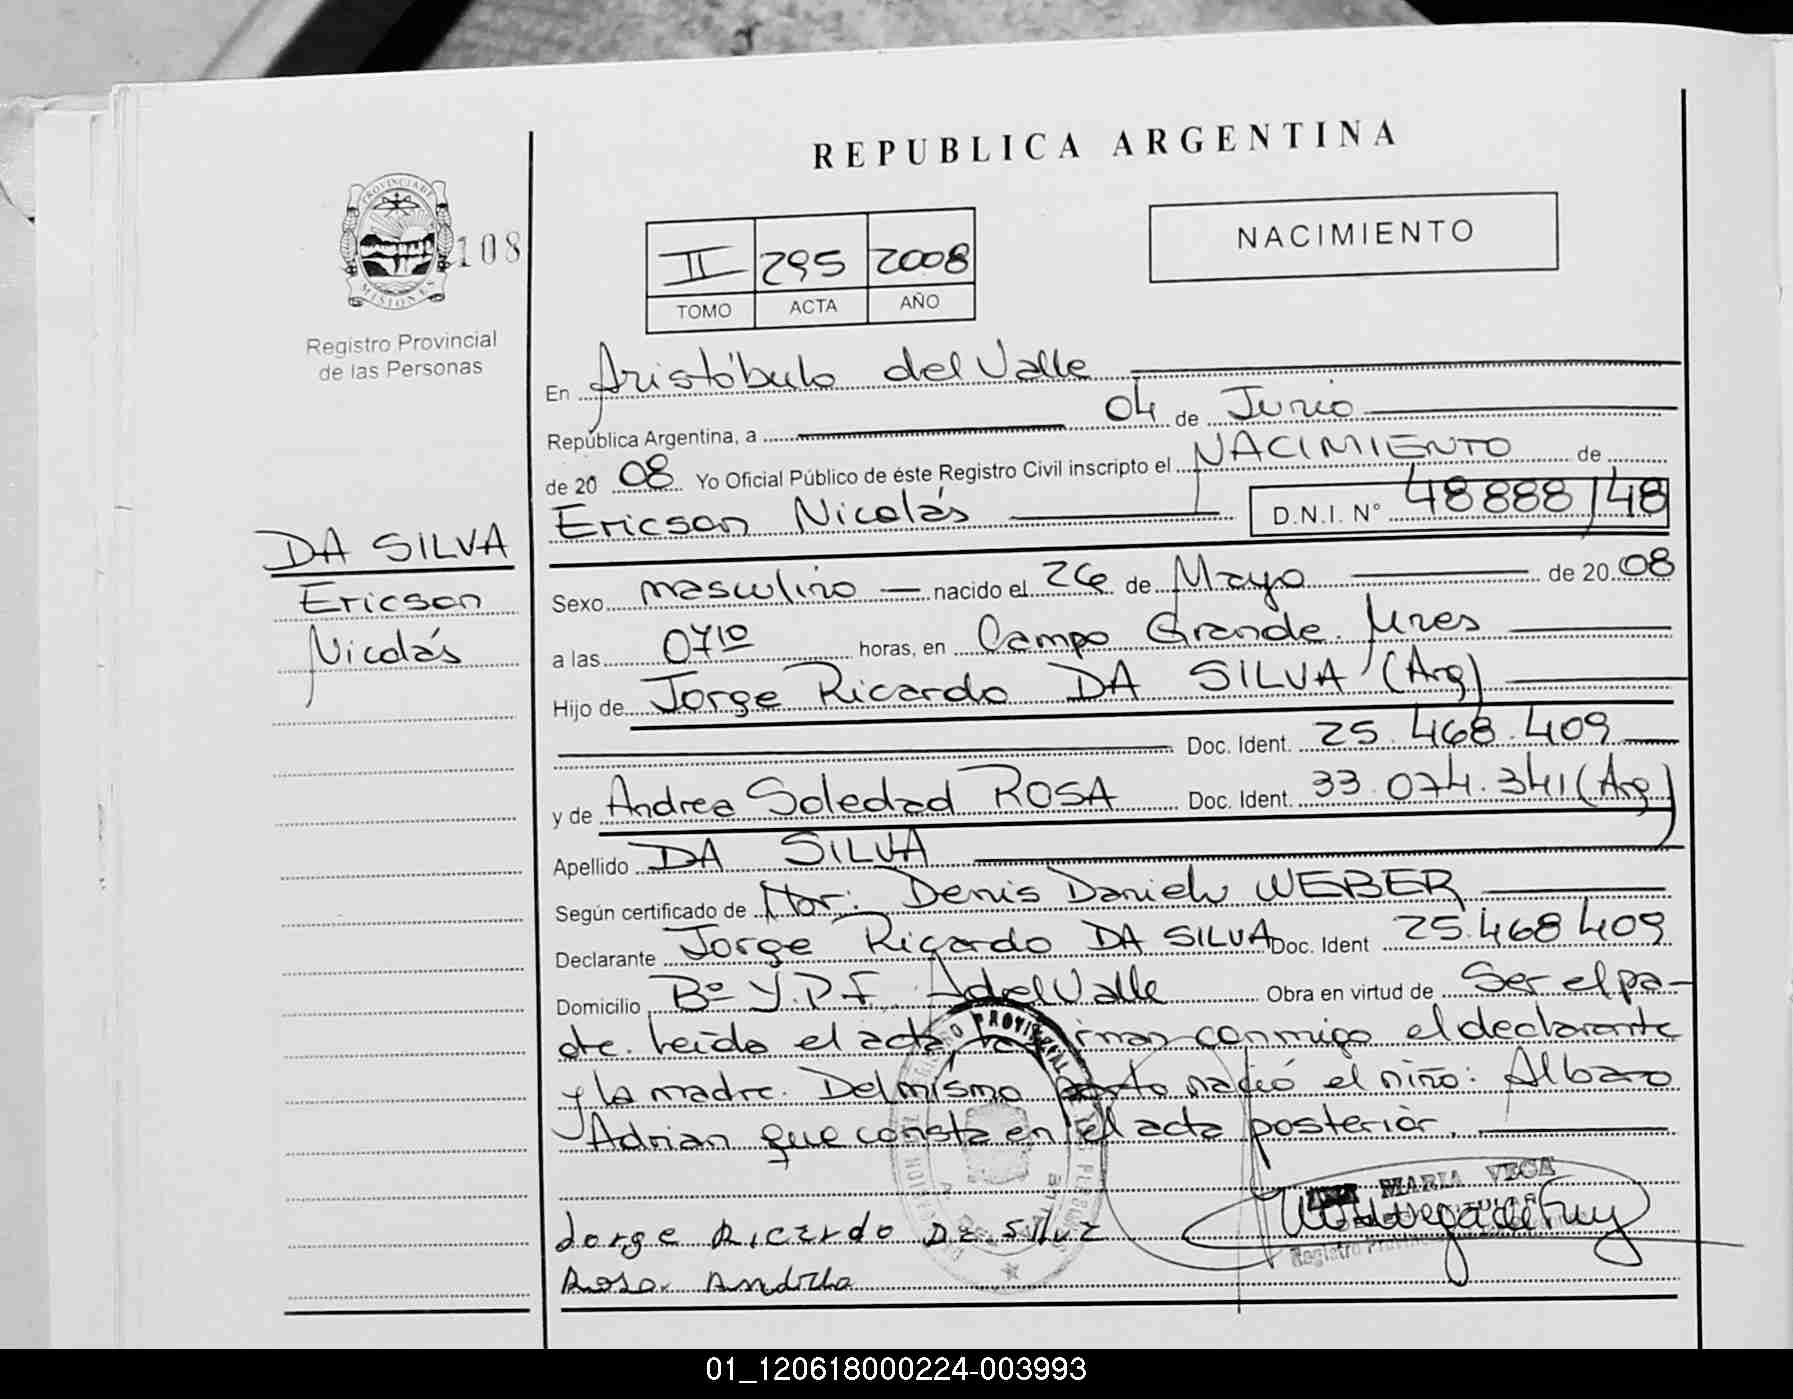 REPUBLICA ARGENTINA
PROVINCIA DE
MISIONES
108
Registro Provincial
de las Personas
II 295 2008
TOMO ACTA AÑO
NACIMIENTO
En Aristóbulo del Valle
República Argentina, a 04 de Junio
de 20 08 Yo Oficial Público de éste Registro Civil inscripto el NACIMIENTO de
Ericson Nicolás D.N.I. N° 48888148
DA SILVA
Ericson
Nicolás
Sexo masculino nacido el 26 de Mayo de 20 08
a las 07 10 horas, en Campo Grande. Mnes
Hijo de Jorge Ricardo DA SILVA (Arg)
Doc. Ident. 25.468.409
y de Andrea Soledad ROSA Doc. Ident. 33.074.341 (Arg)
Apellido DA SILVA
Según certificado de Denis Daniel WEBER
Declarante Jorge Ricardo DA SILVA Doc. Ident 25.468.409
Domicilio Bº Y.P.F. A del Valle Obra en virtud de Ser el pa-
dre. Leída el acta conmigo el declarante
y la madre. Del mismo parto nació el niño: Albaro
Adrian que consta en el acta posterior.
MARIA VEGA
Jorge Ricardo Da Silva
Rosa Andrea
01_120618000224-003993